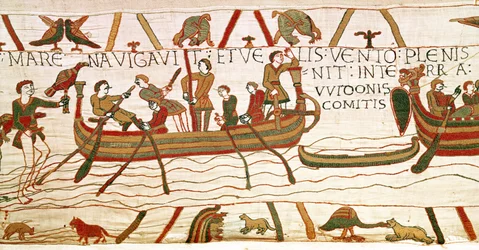 : MARE NAVIGAVIT : ET VELIS : VENTO : PLENIS
NIT : IN TERRA :
VVIDONIS
COMITIS